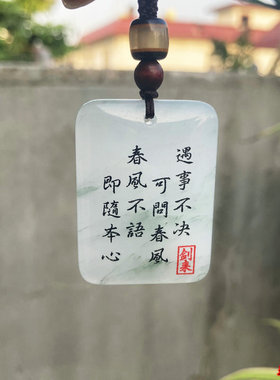 遇事不决
可問春風
春風不語
即隨本心
剑来